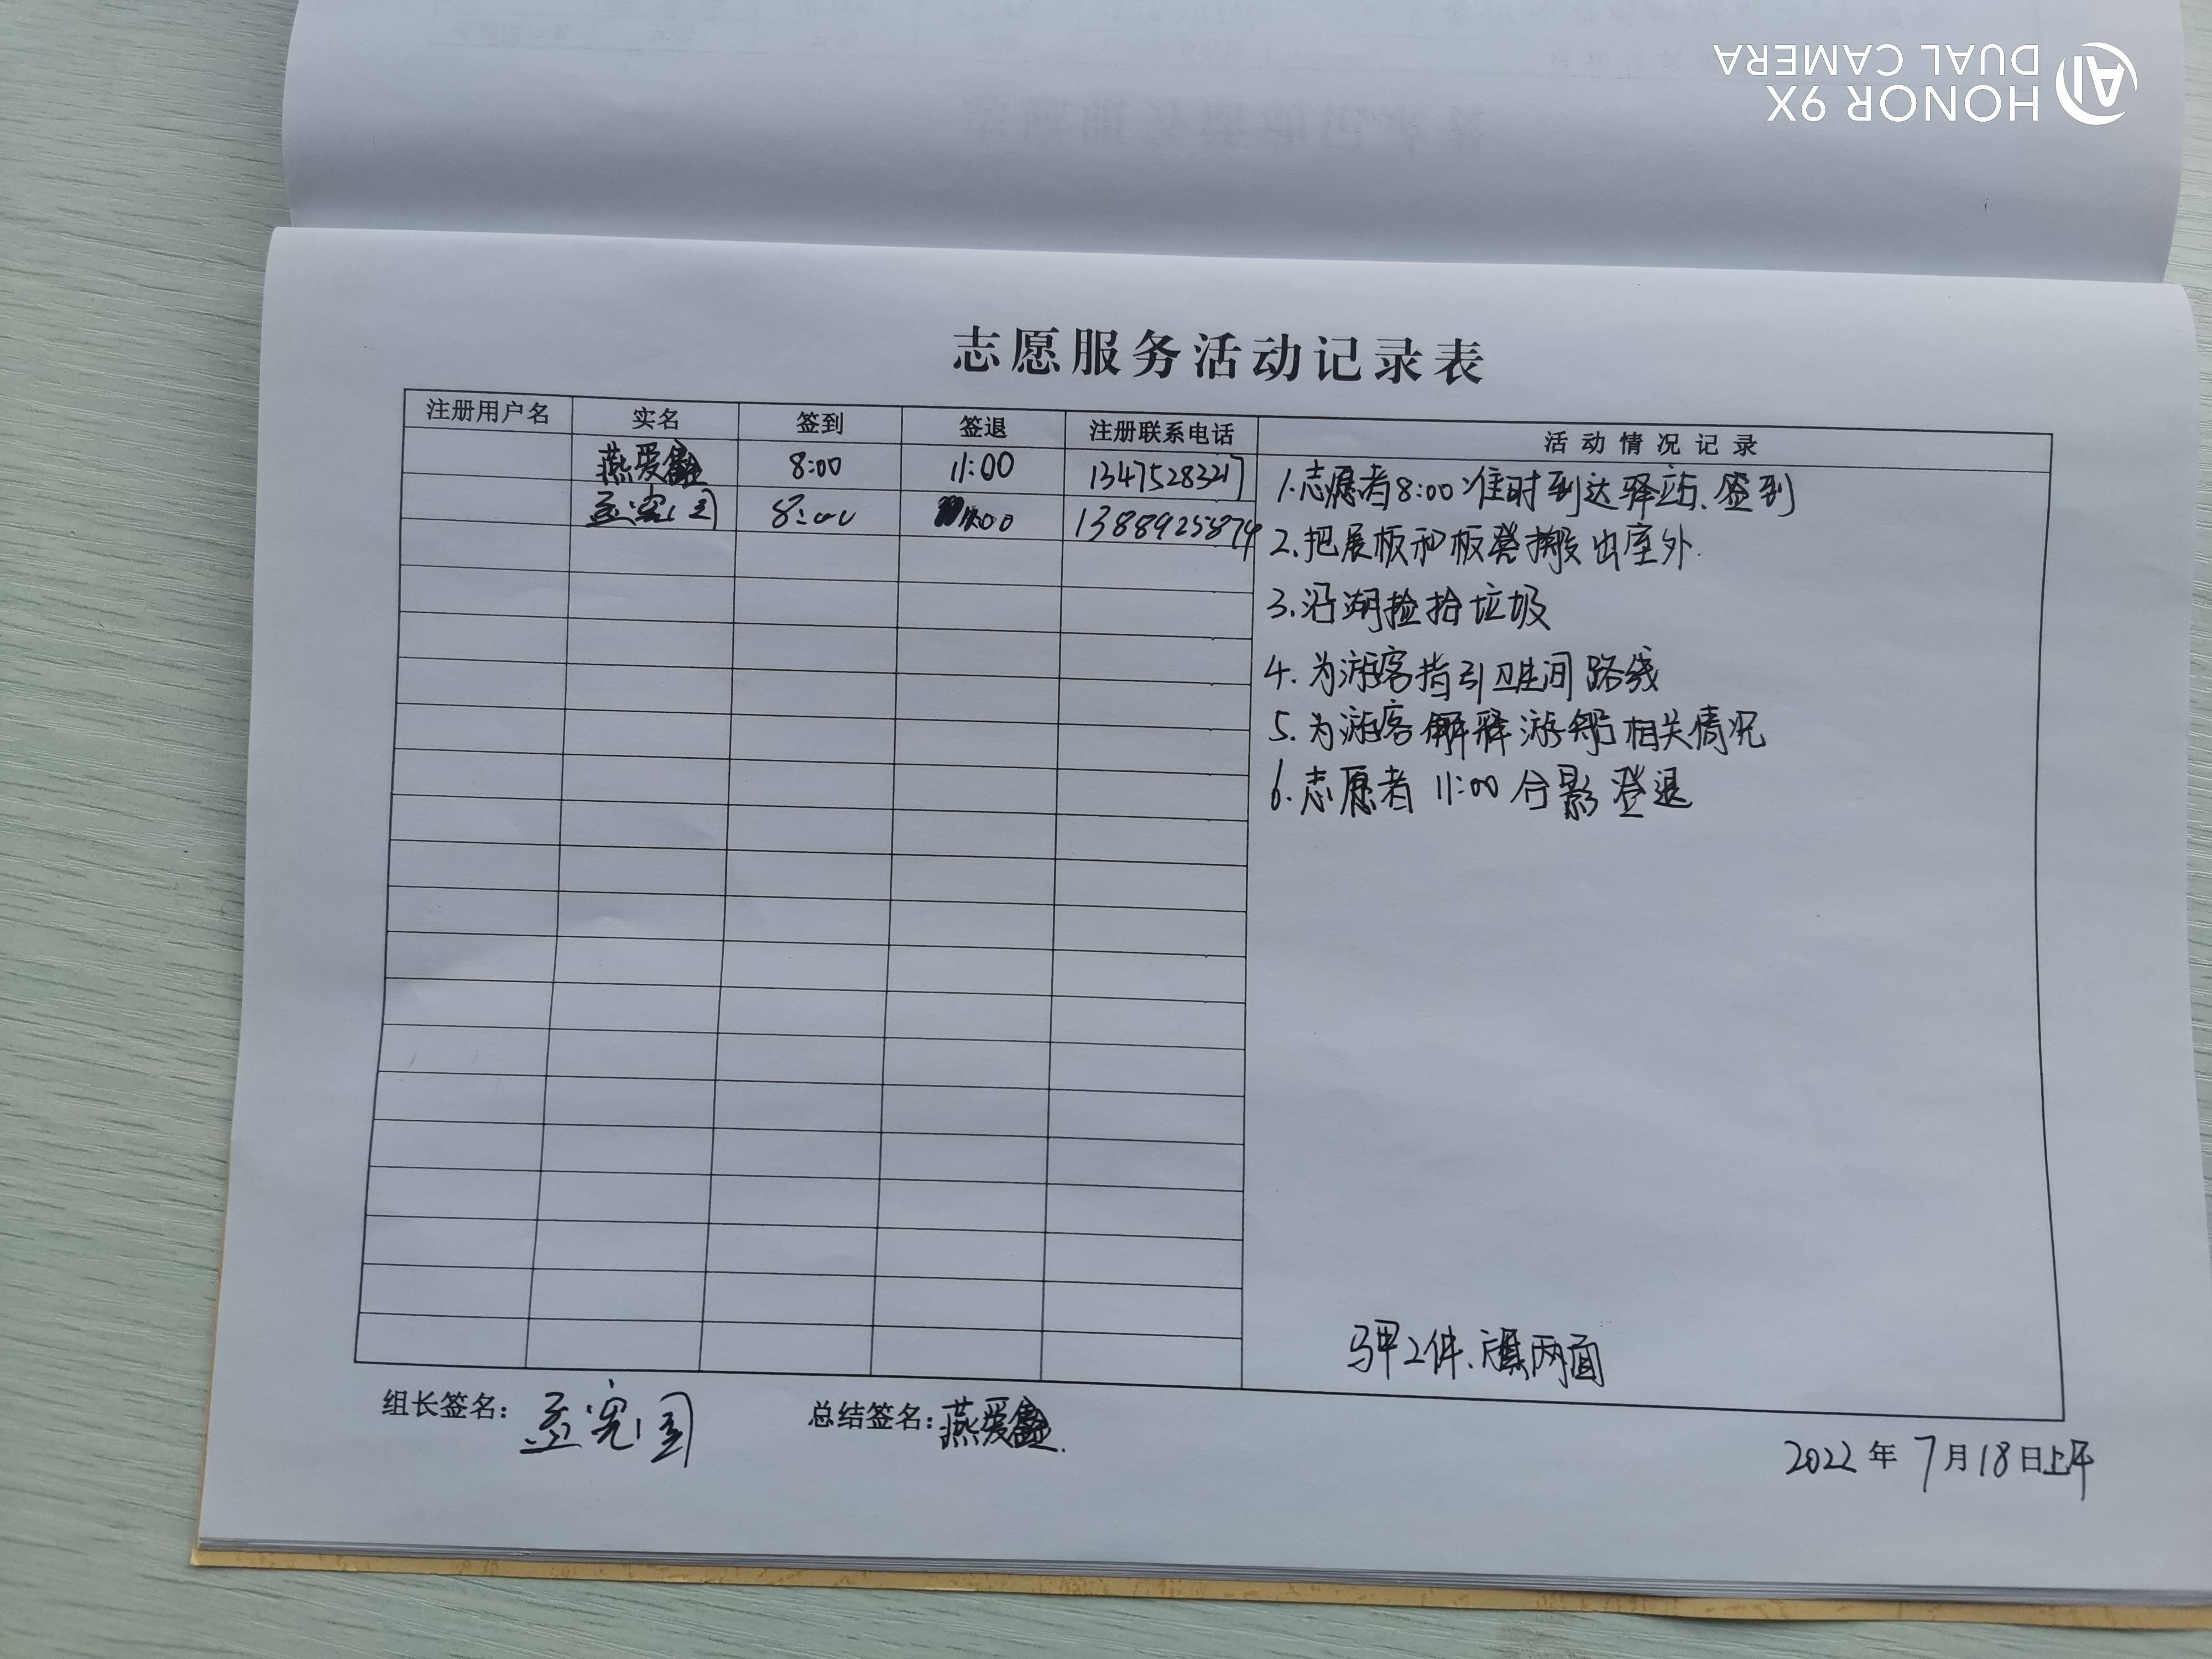 HONOR 9X
DUAL CAMERA
志愿服务活动记录表
注册用户名 实名 签到 签退 注册联系电话 活动情况记录
燕爱鑫 8:00 11:00 13475283217
孟宪国 8:00 11:00 13889255874
1.志愿者8:00准时到达驿站、签到
2.把展板和板凳搬出室外.
3.沿湖捡拾垃圾
4.为游客指引卫生间路线
5.为游客解释游船相关情况
6.志愿者 11:00 合影签退
马甲2件、旗两面
组长签名: 孟宪国 总结签名: 燕爱鑫.
2022年7月18日上午